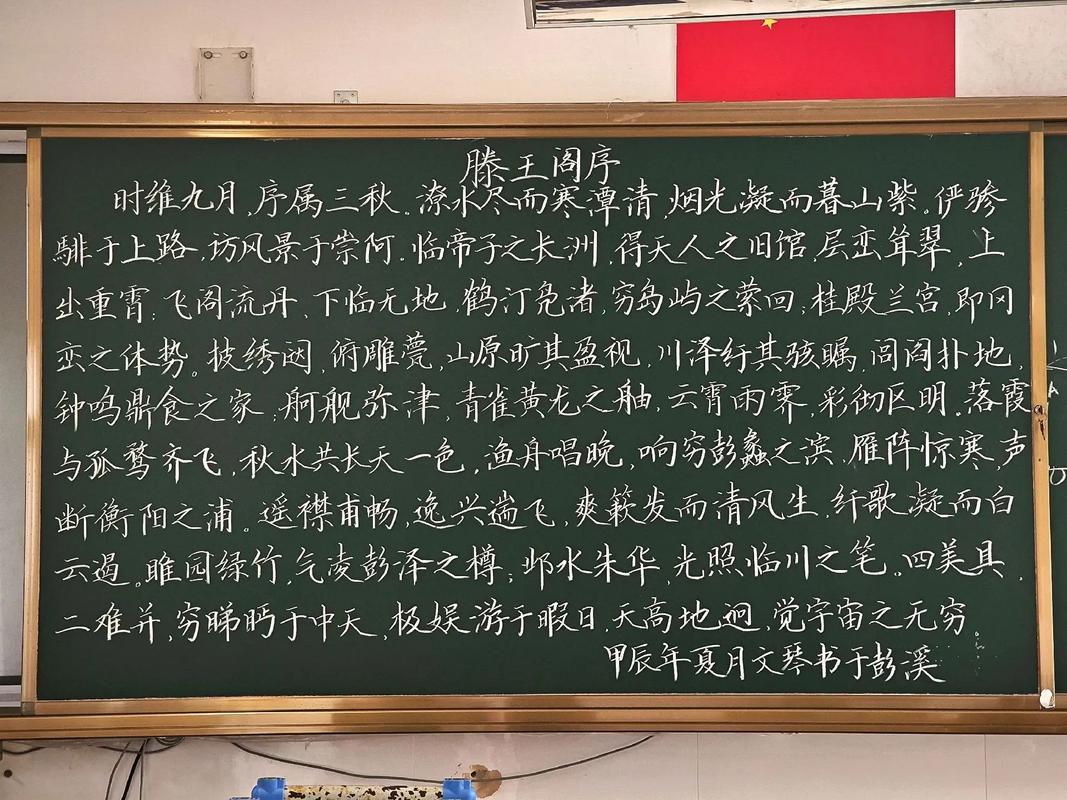 滕王阁序
时维九月,序属三秋。潦水尽而寒潭清,烟光凝而暮山紫。俨骖
騑于上路,访风景于崇阿.临帝子之长洲,得天人之旧馆,层峦耸翠,上
出重霄;飞阁流丹,下临无地.鹤汀凫渚,穷岛屿之萦回;桂殿兰宫,即冈
峦之体势。披绣闼,俯雕甍,山原旷其盈视,川泽纡其骇瞩,闾阎扑地,
钟鸣鼎食之家;舸舰弥津,青雀黄龙之舳,云霄雨霁,彩彻区明.落霞
与孤鹜齐飞,秋水共长天一色,渔舟唱晚,响穷彭蠡之滨,雁阵惊寒,声
断衡阳之浦。遥襟甫畅,逸兴遄飞,爽籁发而清风生,纤歌凝而白
云遏。睢园绿竹,气凌彭泽之樽;邺水朱华,光照临川之笔。四美具,
二难并,穷睇眄于中天,极娱游于暇日,天高地迥,觉宇宙之无穷
甲辰年夏月文琴书于彭溪